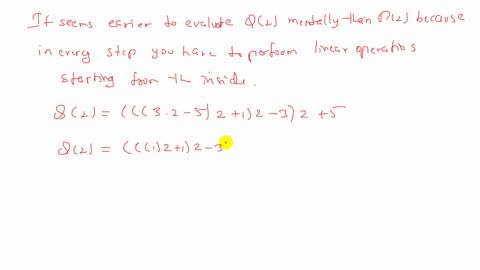 It seems easier to evaluate Q(2) mentally than P(2) because
in every step you have to perform linear operations
starting from the inside.
Q(2) = (((3·2-5)2+1)2-3)2+5
Q(2) = (((1)2+1)2-3